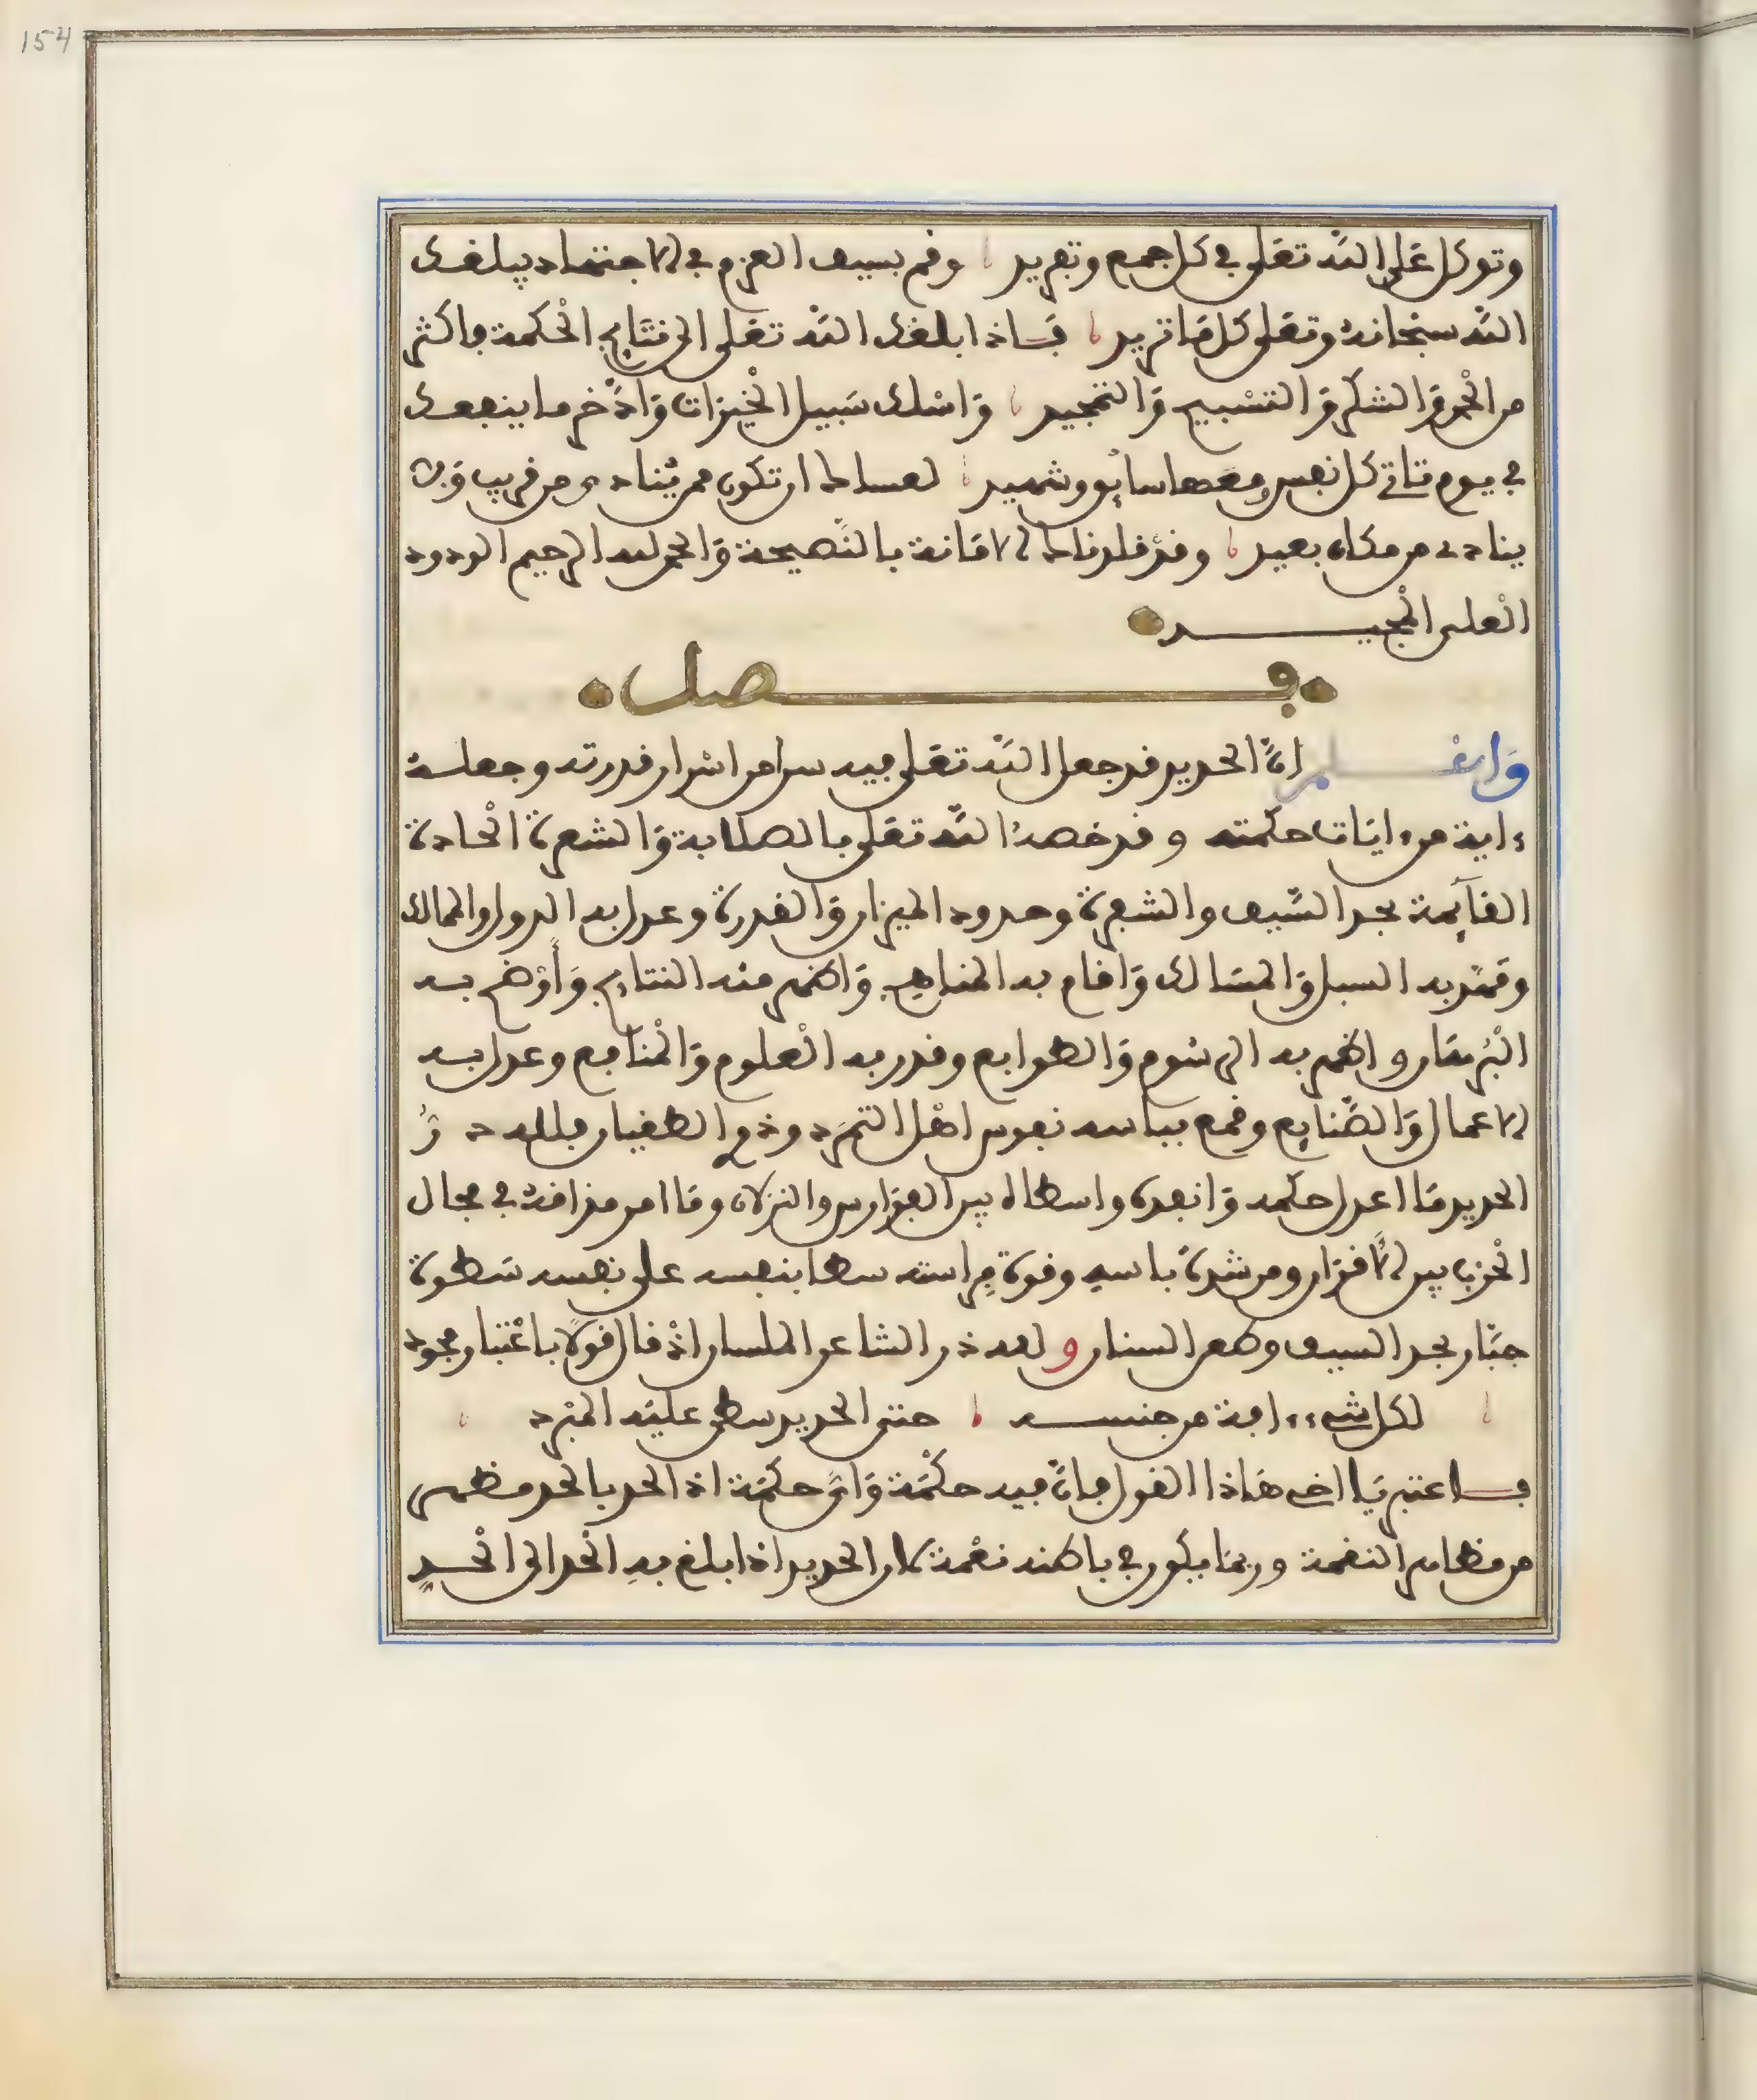 154
وتوكل على الله تعلى في كل جمع وتفريد وقم بسيف العزم في الاجتهاد يبلغك
الله سبحانه وتعلى كل ما تريد فاذا بلغك الله تعلى الى نتايج الحكمة فاكثر
من الحمد والشكر والتسبيح والتمجيد واسلك سبيل الخيرات وادخر ما ينفعك
في يوم تاتي كل نفس معها سايق وشهيد لعساك ان تكون ممن ينادى من قريب ولا
ينادى من مكان بعيد وقد قلدناك الامانة بالنصيحة والحمد لله الرحيم الودود
العلي المجيد
فصل
واعلم ان الحديد قد جعل الله تعلى فيه سرا من اسرار قدرته وجعله
ءاية من ءايات حكمته وقد خصه الله تعلى بالصلابة والشعرة الحادة
القآيمة بحد السيف والشعرة وحدود الميزان والقدرة وعدل به الدول والممالك
ومهد به السبل والمسالك واقام به المناهج واظهر منه النتايج واوضح به
البرهان واظهر به الرسوم والطوابع وقدر به العلوم والمنافع وعدل به
الاعمال والصنايع وقمع بباسه نفوس اهل التمرد وذوي الطغيان فلله در
الحديد ما اعدل حكمه وانفذه واسطاه بين الفوارس والنزلان وما امر مذاقه في مجال
الحرب بين الاقران ومن شدة باسه وقوة مراسته سطا بنفسه على نفسه سطوة
جبار بحد السيف وطعن السنان ولله در الشاعر الملسان اذ قال قولا باعتبار مجود
لكل شيء ءافة من جنسه حتى الحديد سطى عليه المبرد
فاعتبر يا اخي هاذا القول فان فيه حكمة واي حكمة اذ الحد بالحد مظهر
من مظاهر النقمة وربما يكون في باطنه نعمة لان الحديد اذا بلغ به الحد الى الحد